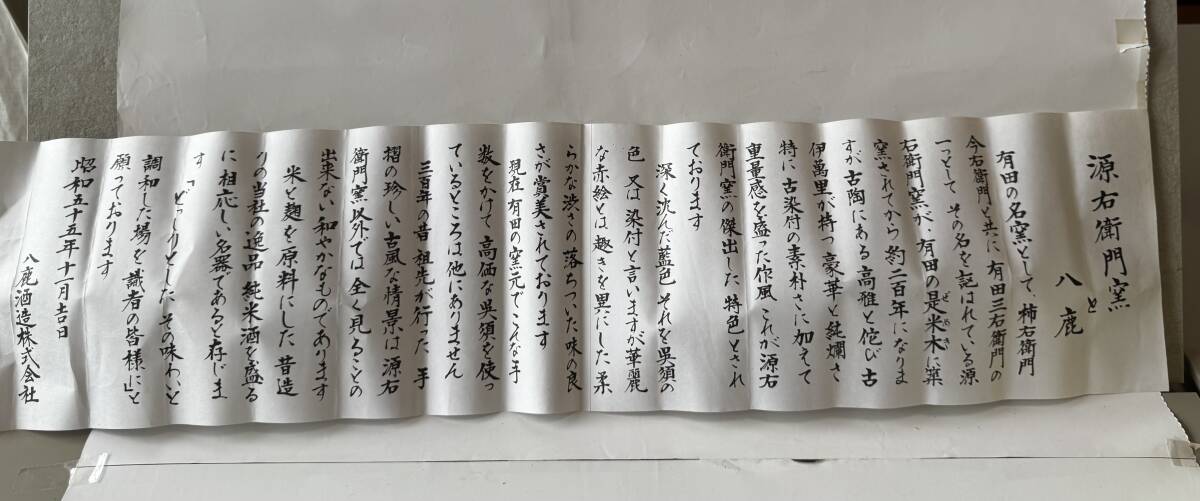 源右衛門窯
と
八鹿
有田の名窯として、柿右衛門
今右衛門と共に 有田三右衛門の
一つとして その名を謳はれている源
右衛門窯が、有田の是米木に築
ぜめき
窯されてから 約二百年になりま
すが 古陶にある 高雅と侘び 古
伊萬里が持つ豪華と絢爛さ
特に 古染付の素朴さに 加えて
重量感を盛った作風 これが源右
衛門窯の傑出した 特色とされ
ております
深く沈んだ藍色 それを呉須の
色 又は 染付と言いますが 華麗
な赤絵とは 趣きを異にした 柔
らかな渋さの 落ちついた味の良
さが賞美されております
現在 有田の窯元で これな手
数をかけて 高価な呉須を使っ
ているところは他にありません
三百年の昔 祖先が行った 手
摺の珍しい古風な情景は 源右
衛門窯以外では 全く見ることの
出来ない 和やかなものであります
米と麹を 原料にした 昔造
りの当社の逸品 純米酒を盛る
に 相応しい名器であると存じま
す 「どっしりとした その味わいと
調和した場を 識者の皆様に」と
願っております
昭和五十五年十一月吉日
八鹿酒造株式会社